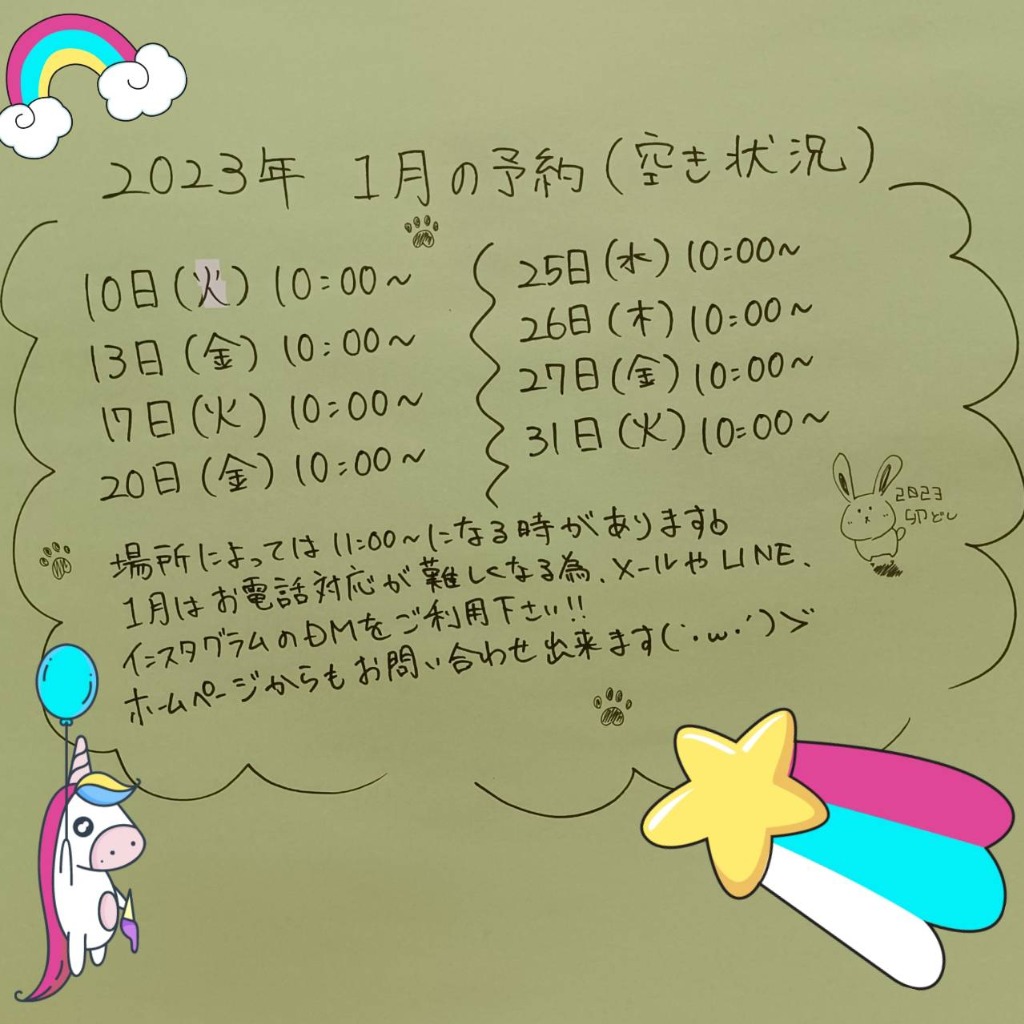 2023年 1月の予約(空き状況)
10日(火) 10:00~
13日(金) 10:00~
17日(火) 10:00~
20日(金) 10:00~
25日(水) 10:00~
26日(木) 10:00~
27日(金) 10:00~
31日(火) 10:00~
2023
卯どし
場所によっては11:00~になる時があります
1月はお電話対応が難しくなる為、メールやLINE、
インスタグラムのDMをご利用下さい!!
ホームページからもお問い合わせ出来ます(`・ω・´)ゞ